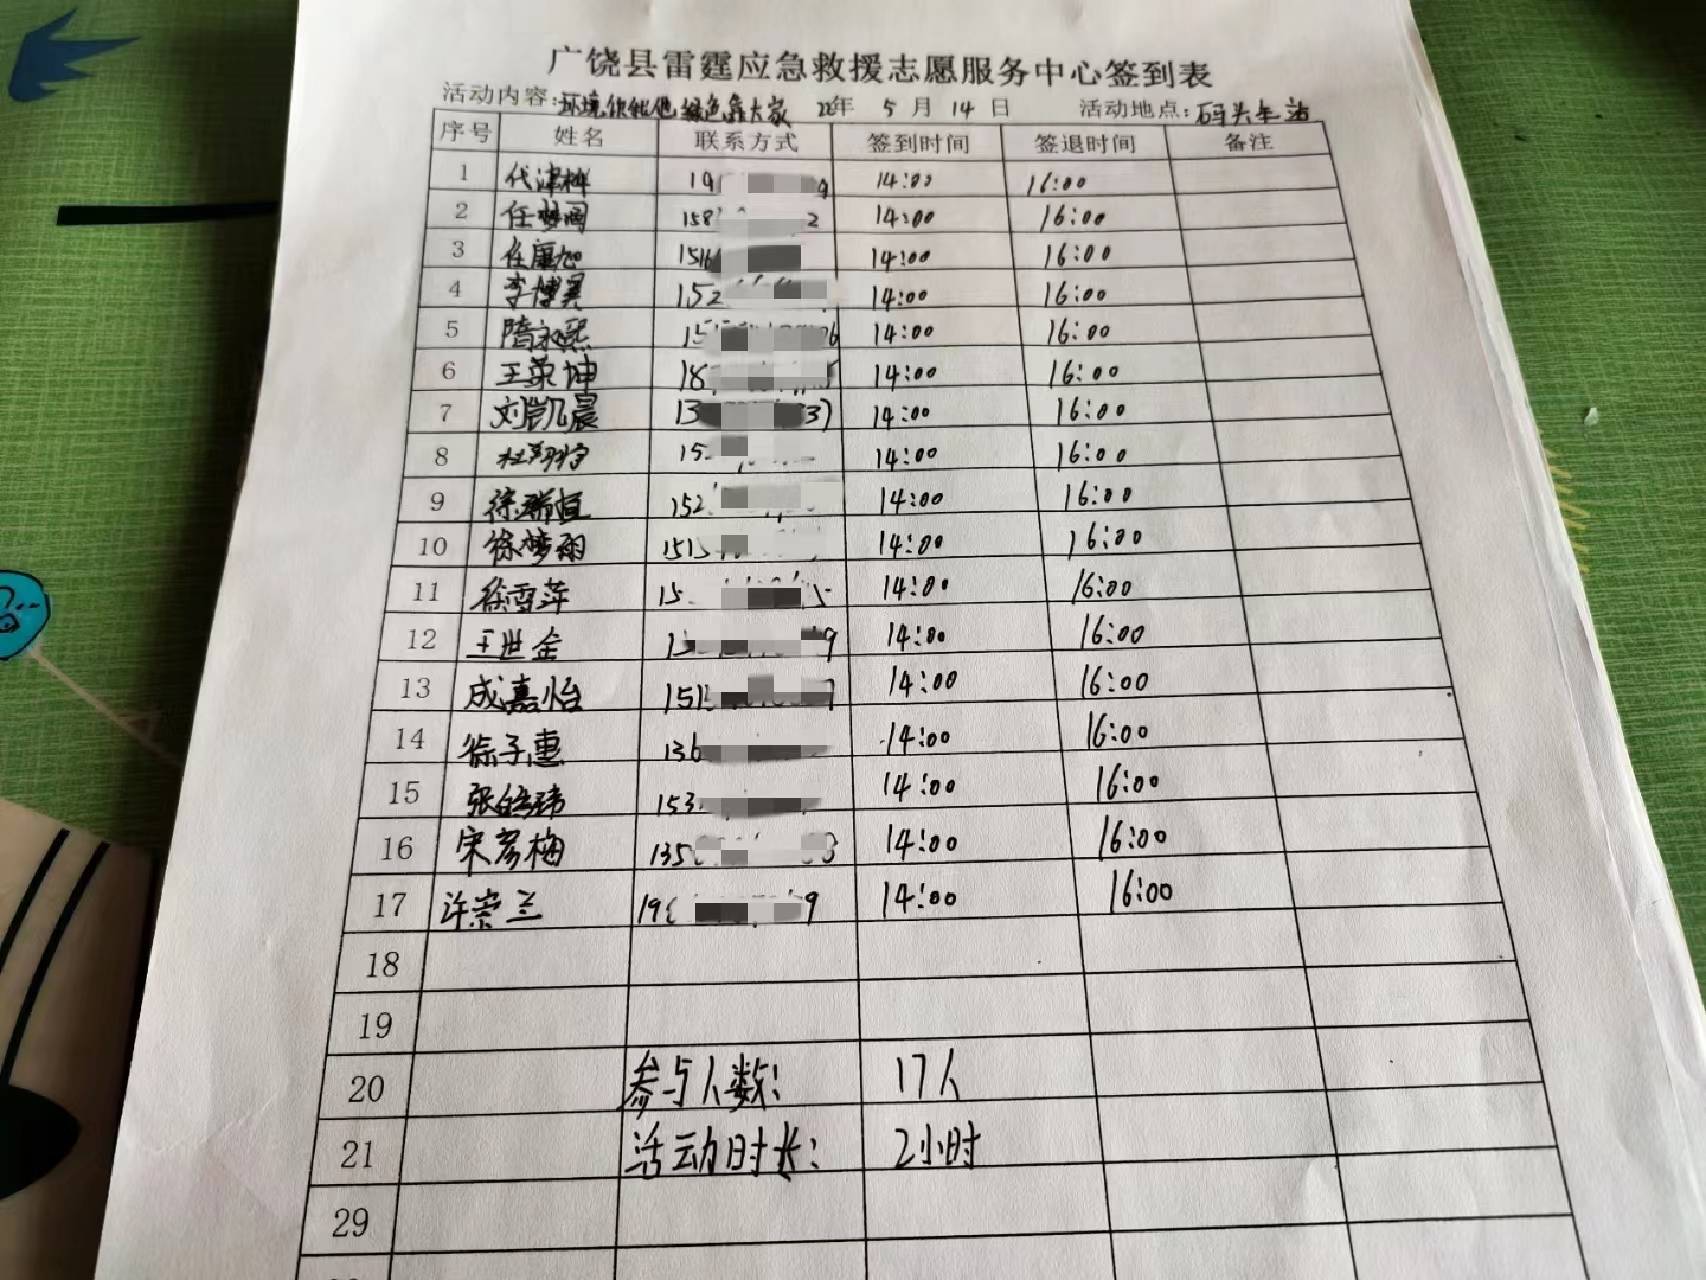 广饶县雷霆应急救援志愿服务中心签到表
活动内容:环境你我他 绿色靠大家 22年 5月 14日 活动地点:码头车站
序号 姓名 联系方式 签到时间 签退时间 备注
1 19 9 14:00 16:00
2 158 2 14:00 16:00
3 任康旭 1516 14:00 16:00
4 李博 152 14:00 16:00
5 隋永熙 15 6 14:00 16:00
6 王荣坤 18 5 14:00 16:00
7 刘凯晨 13 37 14:00 16:00
8 15 14:00 16:00
9 徐瑞恒 152 14:00 16:00
10 徐梦雨 1515 14:00 16:00
11 徐雪萍 15 5 14:00 16:00
12 王世金 9 14:00 16:00
13 成嘉怡 151 14:00 16:00
14 徐子惠 136 14:00 16:00
15 153 14:00 16:00
16 宋彦梅 135 3 14:00 16:00
17 许崇兰 19 9 14:00 16:00
18
19
20 参与人数: 17人
21 活动时长: 2小时
29